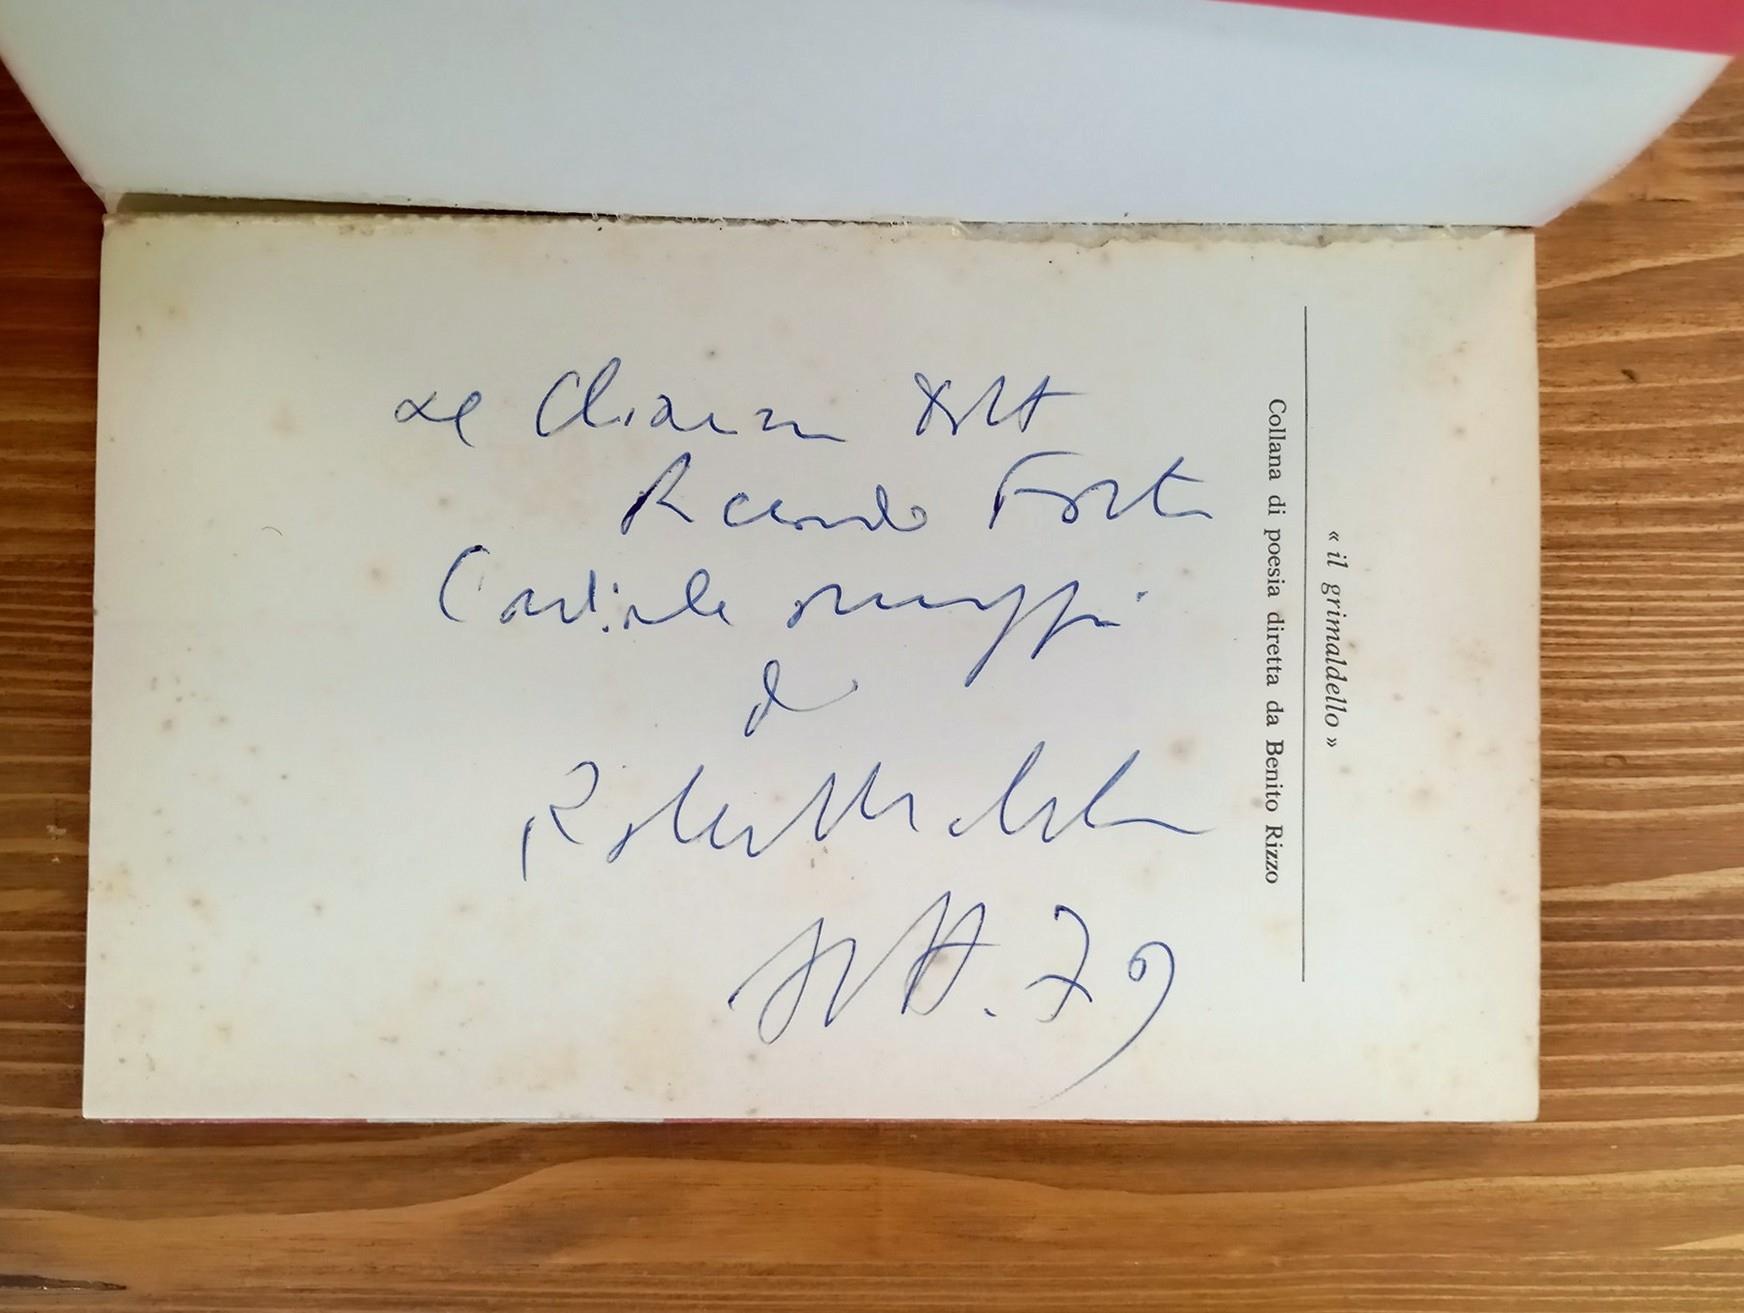 al Chiar.mo Dott
Riccardo Forte
Cordiale omaggio
di
Sett. 79
« il grimaldello »
Collana di poesia diretta da Benito Rizzo